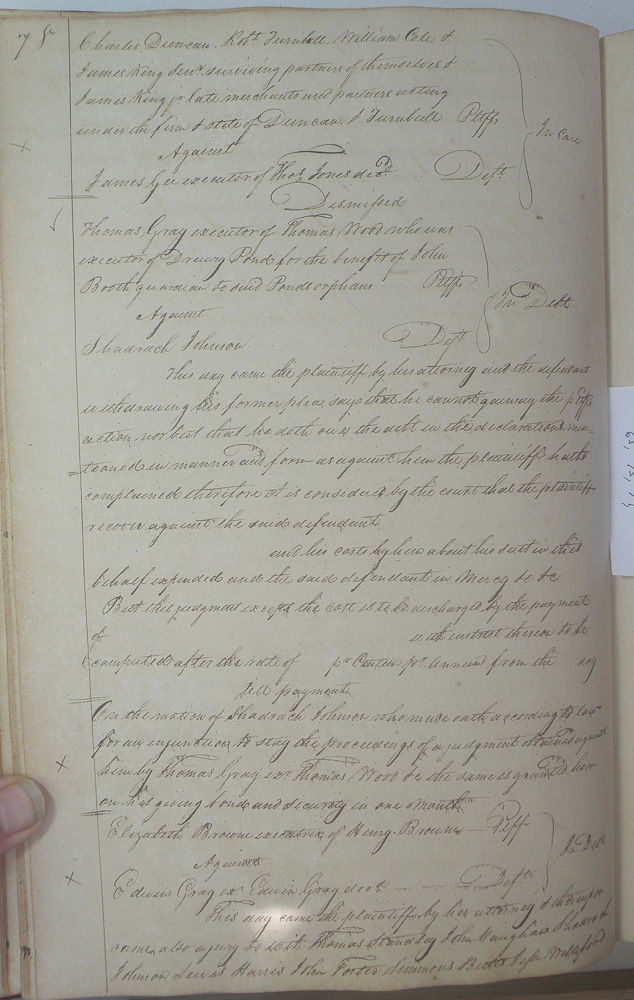 Charles Duncan. Robt Turnbull. William Cole &
James King Senr. surviving partners of themselves &
James King jr late merchants and partners acting
under the firm & stile of Duncan & Turnbull Pltffs
In Case
Against
James Gee executor of Thos. Jones decd. Deft
Dismissed
Thomas Gray executor of Thomas Wood who was
executor of Drewry Pond for the benefit of John
Booth guardian to said Ponds orphans Pltffs
In Debt
Against
Shadrach Johnson Deft
This day came the plaintiff by his attorney and the defendant
withdrawing his former plea says that he cannot gainsay the pltffs
action nor but that he doth owe the debt in the declaration men=
tioned in manner and form as against him the plaintiff hath
complained therefore it is considered by the court that the plaintiff
recover against the said defendant
and his costs by him about his suit in this
behalf expended and the said defendant in Mercy &c &c
But this judgment except the cost is to be discharged by the payment
of with interest thereon to be
computed after the rate of pr Centum pr. annum from the day
till payment
On the motion of Shadrach Johnson who made oath according to law
for an injunction to stay the proceedings of a judgment obtained against
him by Thomas Gray exr Thomas Wood &c the same is granted him
on his giving bond and security in one month
Elizabeth Browne executrix of Henry Browne Pltff
In Debt
Against
Edwin Gray exr Edwin Gray decd Deft
This day came the plaintiff by her attorney & thereupon
came also a jury to wit Thomas John Vaughan Shadrach
Johnson Lewis Harris John Porter Simmons